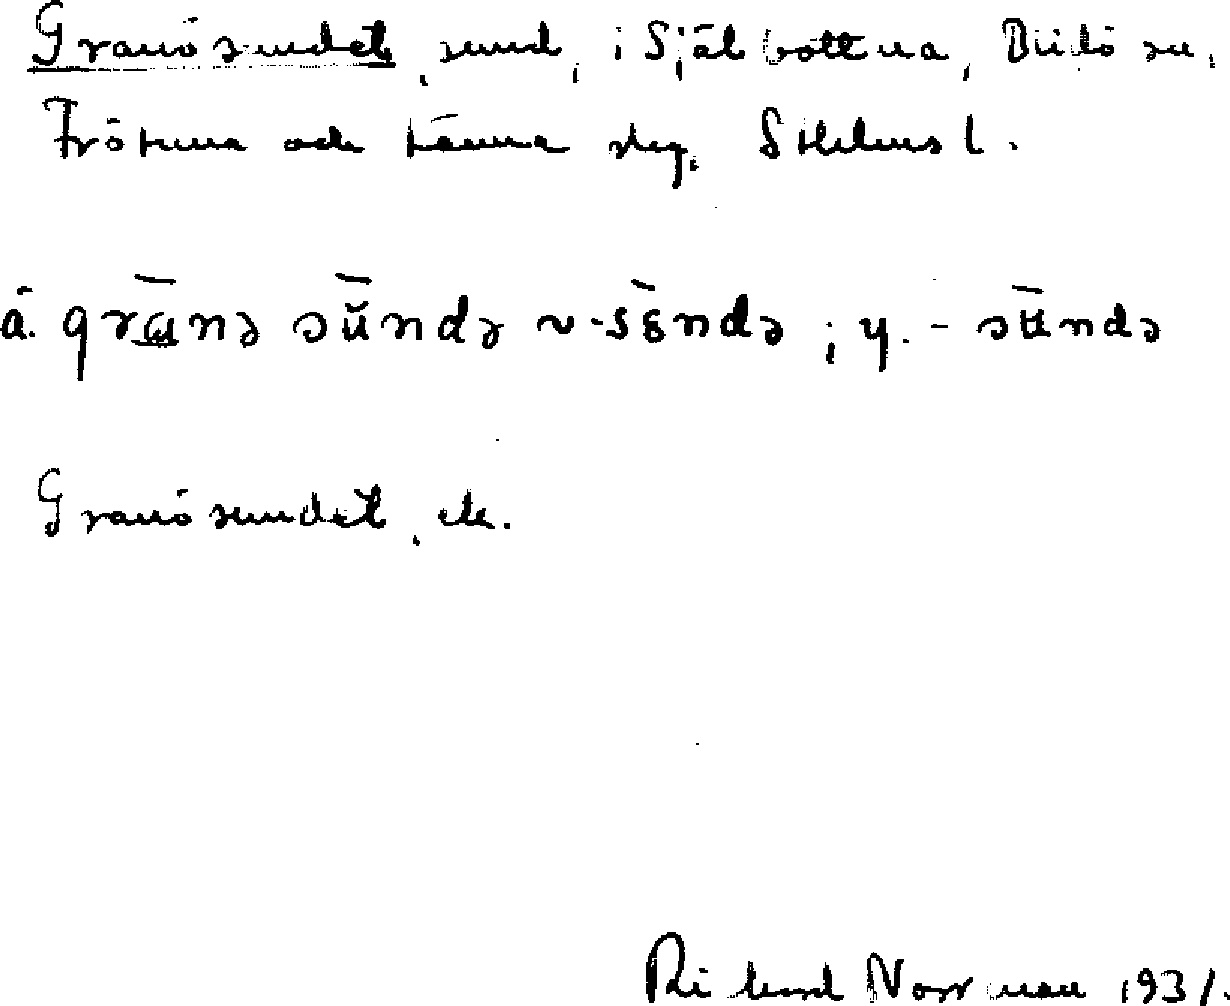 Granösundet, sund, i Själbottna, Blidö sn,
Frötuna och Länna skg, Sthlms l.
å. grɑ̄nə sŭ̄ndə ~ -sɛ̄ndə ; y. - sʉ̄ndə
Granösundet, ek.
Rikard Norrman 1931.